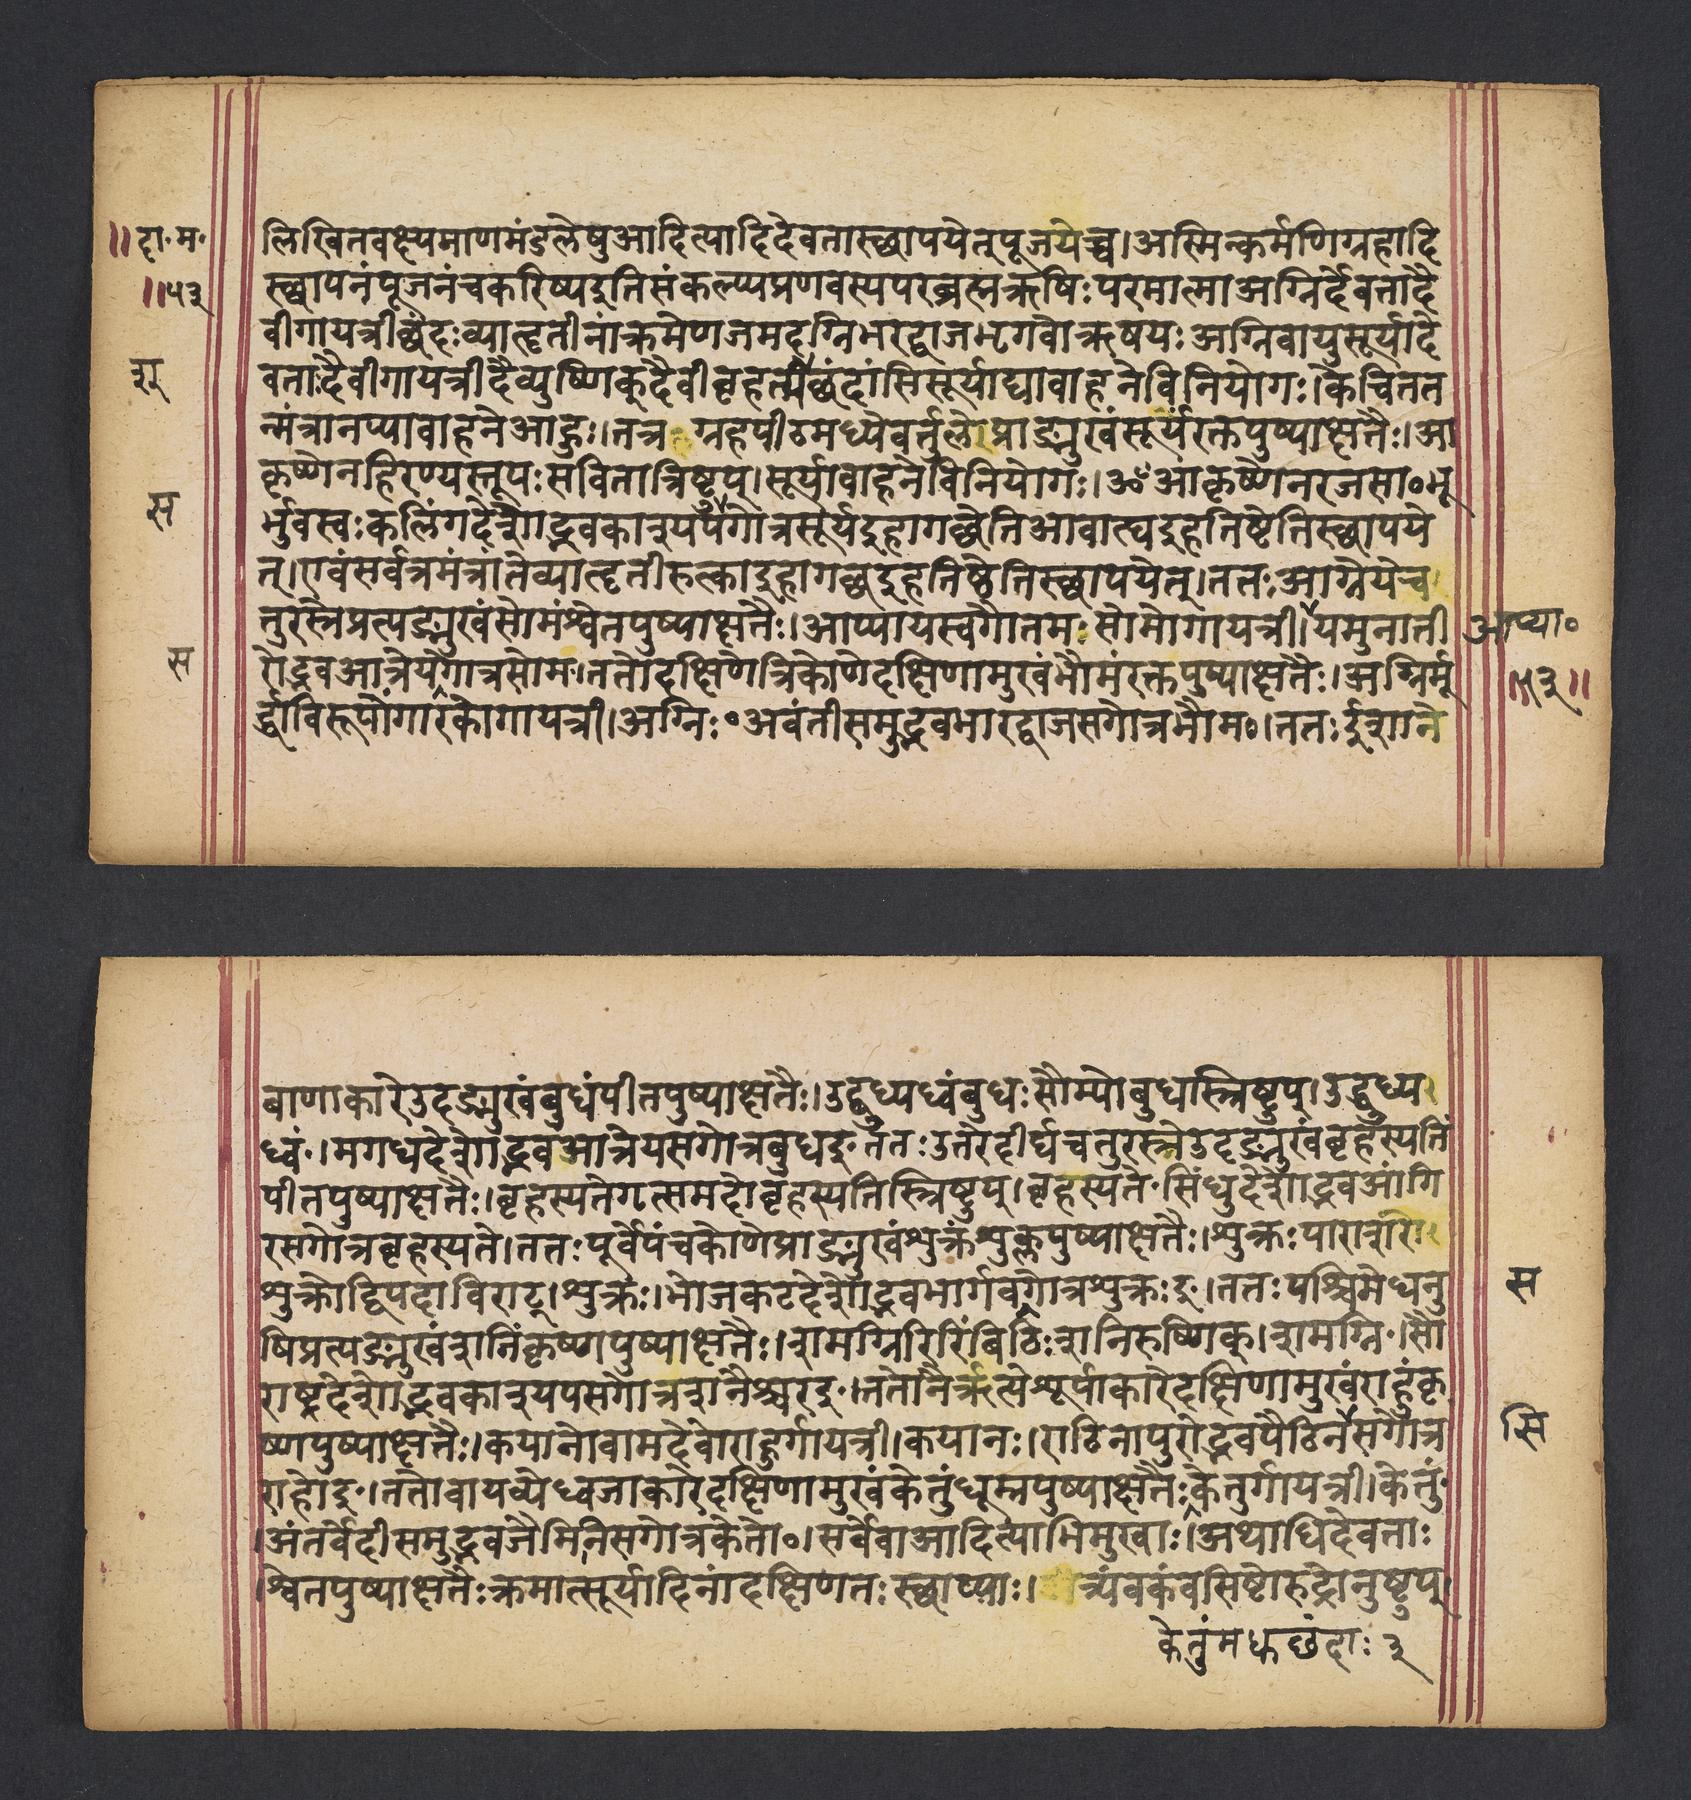 ॥दा॰म॰
॥५३
लिखितवक्ष्यमाणमंडलेषुआदित्यादिदेवतास्छापयेत्पूजयेच्च।अस्मिन्कर्मणिग्रहादि
स्छापनंपूजनंचकरिष्यइतिसंकल्प्यप्रणवस्यपरब्रह्मऋषिःपरमात्माअग्निर्देवतादै
वीगायत्रीछंदःव्याहृतीनांक्रमेणजमदग्निभरद्वाजभृगवोऋषयःअग्निवायुसूर्यादे
वताःदैवीगायत्रीदैव्युष्णिक्दैवीबृहत्यैछंदांसिसूर्याद्यावाहनेविनियोगः।केचितत
शा
न्मंत्रानप्यावाहनेआहुः।तत्र ग्रहपीठमध्येवर्तुलेप्राङ्मुखंसूर्यंरक्तपुष्पाक्षतैः।आ
कृष्णेनहिरण्यस्तूपःसवितात्रिष्टुप्।सूर्यावाहनेविनियोगः।ॐआकृष्णेनरजसा॰भू
स
र्भुवस्वःकलिंगदेशोद्भवकाश्यपगोत्रसूर्यइहागछेतिआवाह्यइहतिष्टेतिस्छापये
त्।एवंसर्वत्रमंत्रांतेव्याहृतीरुत्काइहागछइहतिष्ठेतिस्छापयेत्।ततःआग्नेयेच
तुरस्त्रेप्रत्यङ्मुखंसोमंश्वेतपुष्पाक्षतैः।आप्यायस्वगौतमःसोमोगायत्री।यमुनाती
आप्या॰
स
रोद्भवआत्रेयगोत्रसोम॰।ततोदक्षिणेत्रिकोणेदक्षिणामुखंभौमंरक्तपुष्पाक्षतैः।अग्निर्मू
र्द्धाविरूपोंगारकोगायत्री।अग्निः॰अवंतीसमुद्भवभारद्वाजसगोत्रभौम॰।ततःईशाने
५३॥
बाणाकारेउदङ्मुखंबुधंपीतपुष्पाक्षतैः।उद्बुध्यध्वंबुधःसौम्योबुधस्त्रिष्टुप्।उद्बुध्य
ध्वं॰।मगधदेशोद्भवआत्रेयसगोत्रबुधइ॰ततःउत्तरेदीर्घचतुरस्त्रेउदङ्मुखंबृहस्पतिं
पीतपुष्पाक्षतैः।बृहस्पतेगृत्समदोबृहस्पतिस्त्रिष्टुप्।बृहस्पते॰सिंधुदेशोद्भवआंगि
रसगोत्रबृहस्पते।ततःपूर्वेपंचकोणेप्राङ्मुखंशुक्रंशुक्लपुष्पाक्षतैः।शुक्रःपाराशरो
शुक्रोद्विपदाविराट्।शुक्रः।भोजकटदेशोद्भवभार्गवगोत्रशुक्रःइ॰।ततःपश्चिमेधनु
स
षिप्रत्यङ्मुखंशनिंकृष्णपुष्पाक्षतैः।शमग्निरिरिंबिठिःशनिरुष्णिक्।शमग्नि॰।सौ
राष्ट्रदेशोद्भवकाश्यपसगोत्रशनैश्चरइ॰।ततोनैर्ऋत्येशूर्पाकारेदक्षिणामुखंराहुंकृ
ष्णपुष्पाक्षतैः।कयानोवामदेवोराहुर्गायत्री।कयानः।राठिनापुरोद्भवपैठिनसगोत्र
सि
राहोइ॰।ततोवायव्येध्वजाकारेदक्षिणामुखंकेतुंधूम्रपुष्पाक्षतैःकेतुर्गायत्री।केतुं॰
।अंतर्वेदीसमुद्भवजैमिनिसगोत्रकेतो॰।सर्वेवाआदित्याभिमुखाः।अथाधिदेवताः
।श्वेतपुष्पाक्षतैःक्रमात्सूर्यादिनांदक्षिणतःस्छाप्याः। त्र्यंबकंवसिष्टोरुद्रोनुष्टुप्
केतुंमधुछंदाः ३